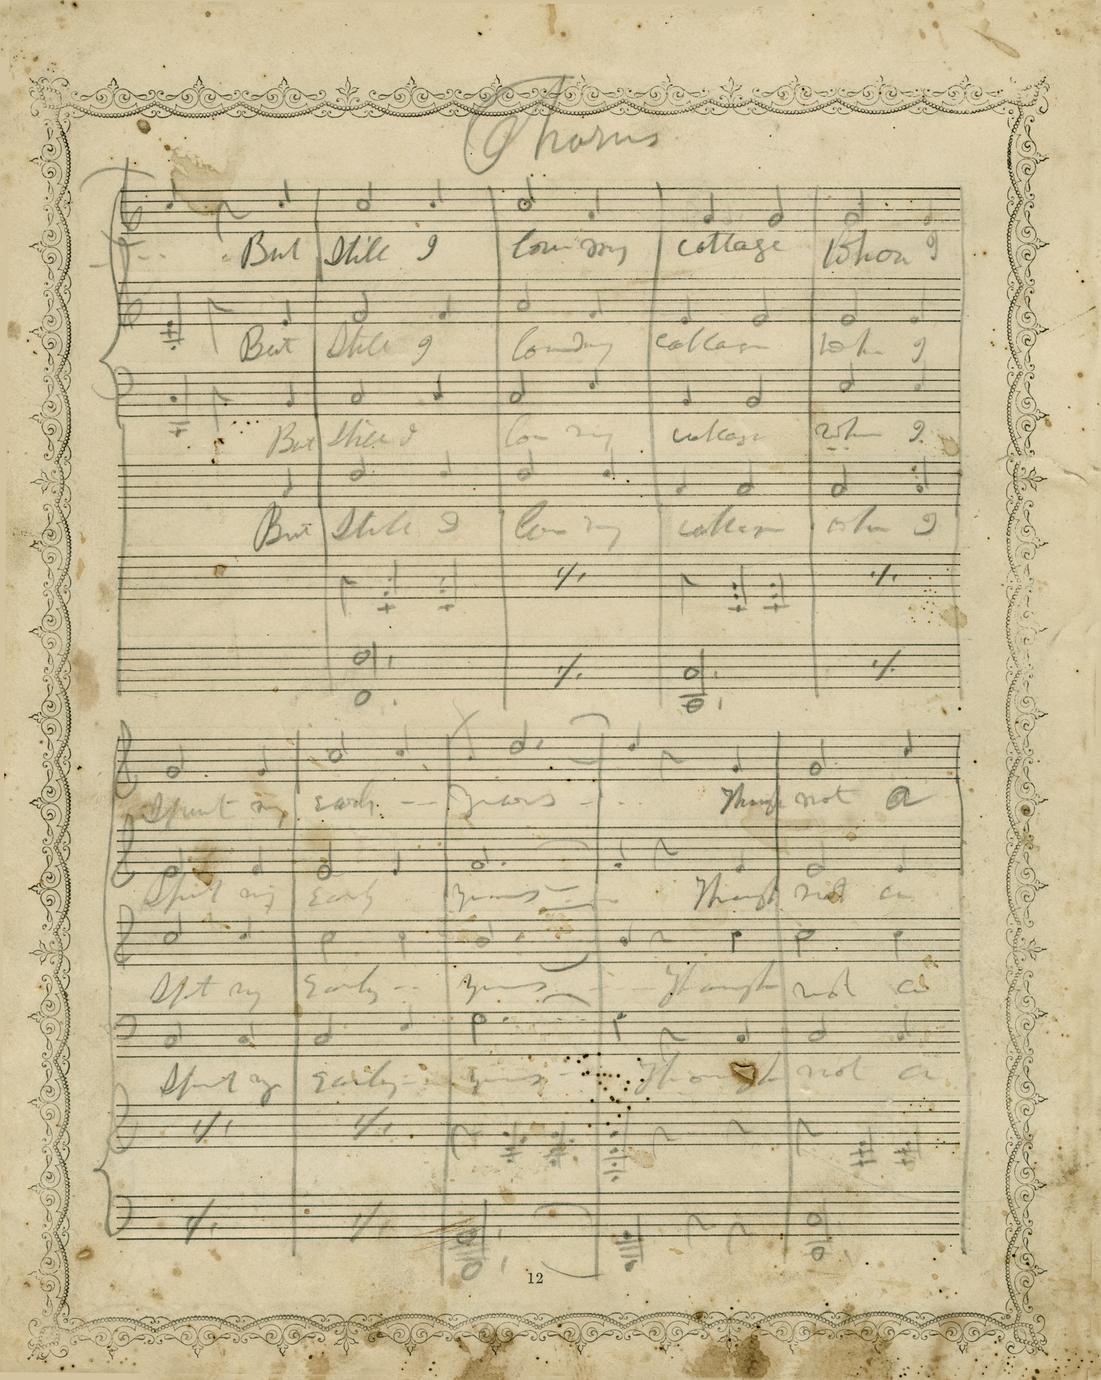 Chorus
But Still I love my cottage Whare I
But Still I love my cottage Whe I
But Still I love my cottage Whe I
But Still I love my cottage when I
Spent my Early -- years -- Though not a
Spent my Early years Though not a
Spt my Early -- years Though not a
Spent my Early -- years -- Though not a
12